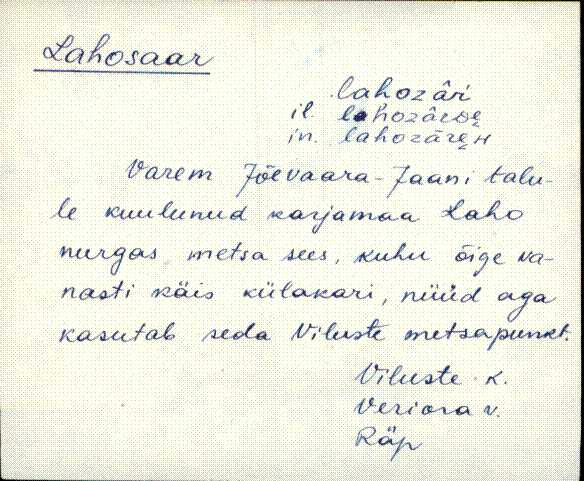 Lahosaar
lahozâri
il. lahozârde̮
in. lahozāre̮н
Varem Jõevaara-Jaani talu-
le kuulunud karjamaa Laho
nurgas metsa sees, kuhu õige va-
nasti käis külakari, nüüd aga
kasutab seda Viluste metsapunkt.
Viluste k.
Veriora v.
Räp